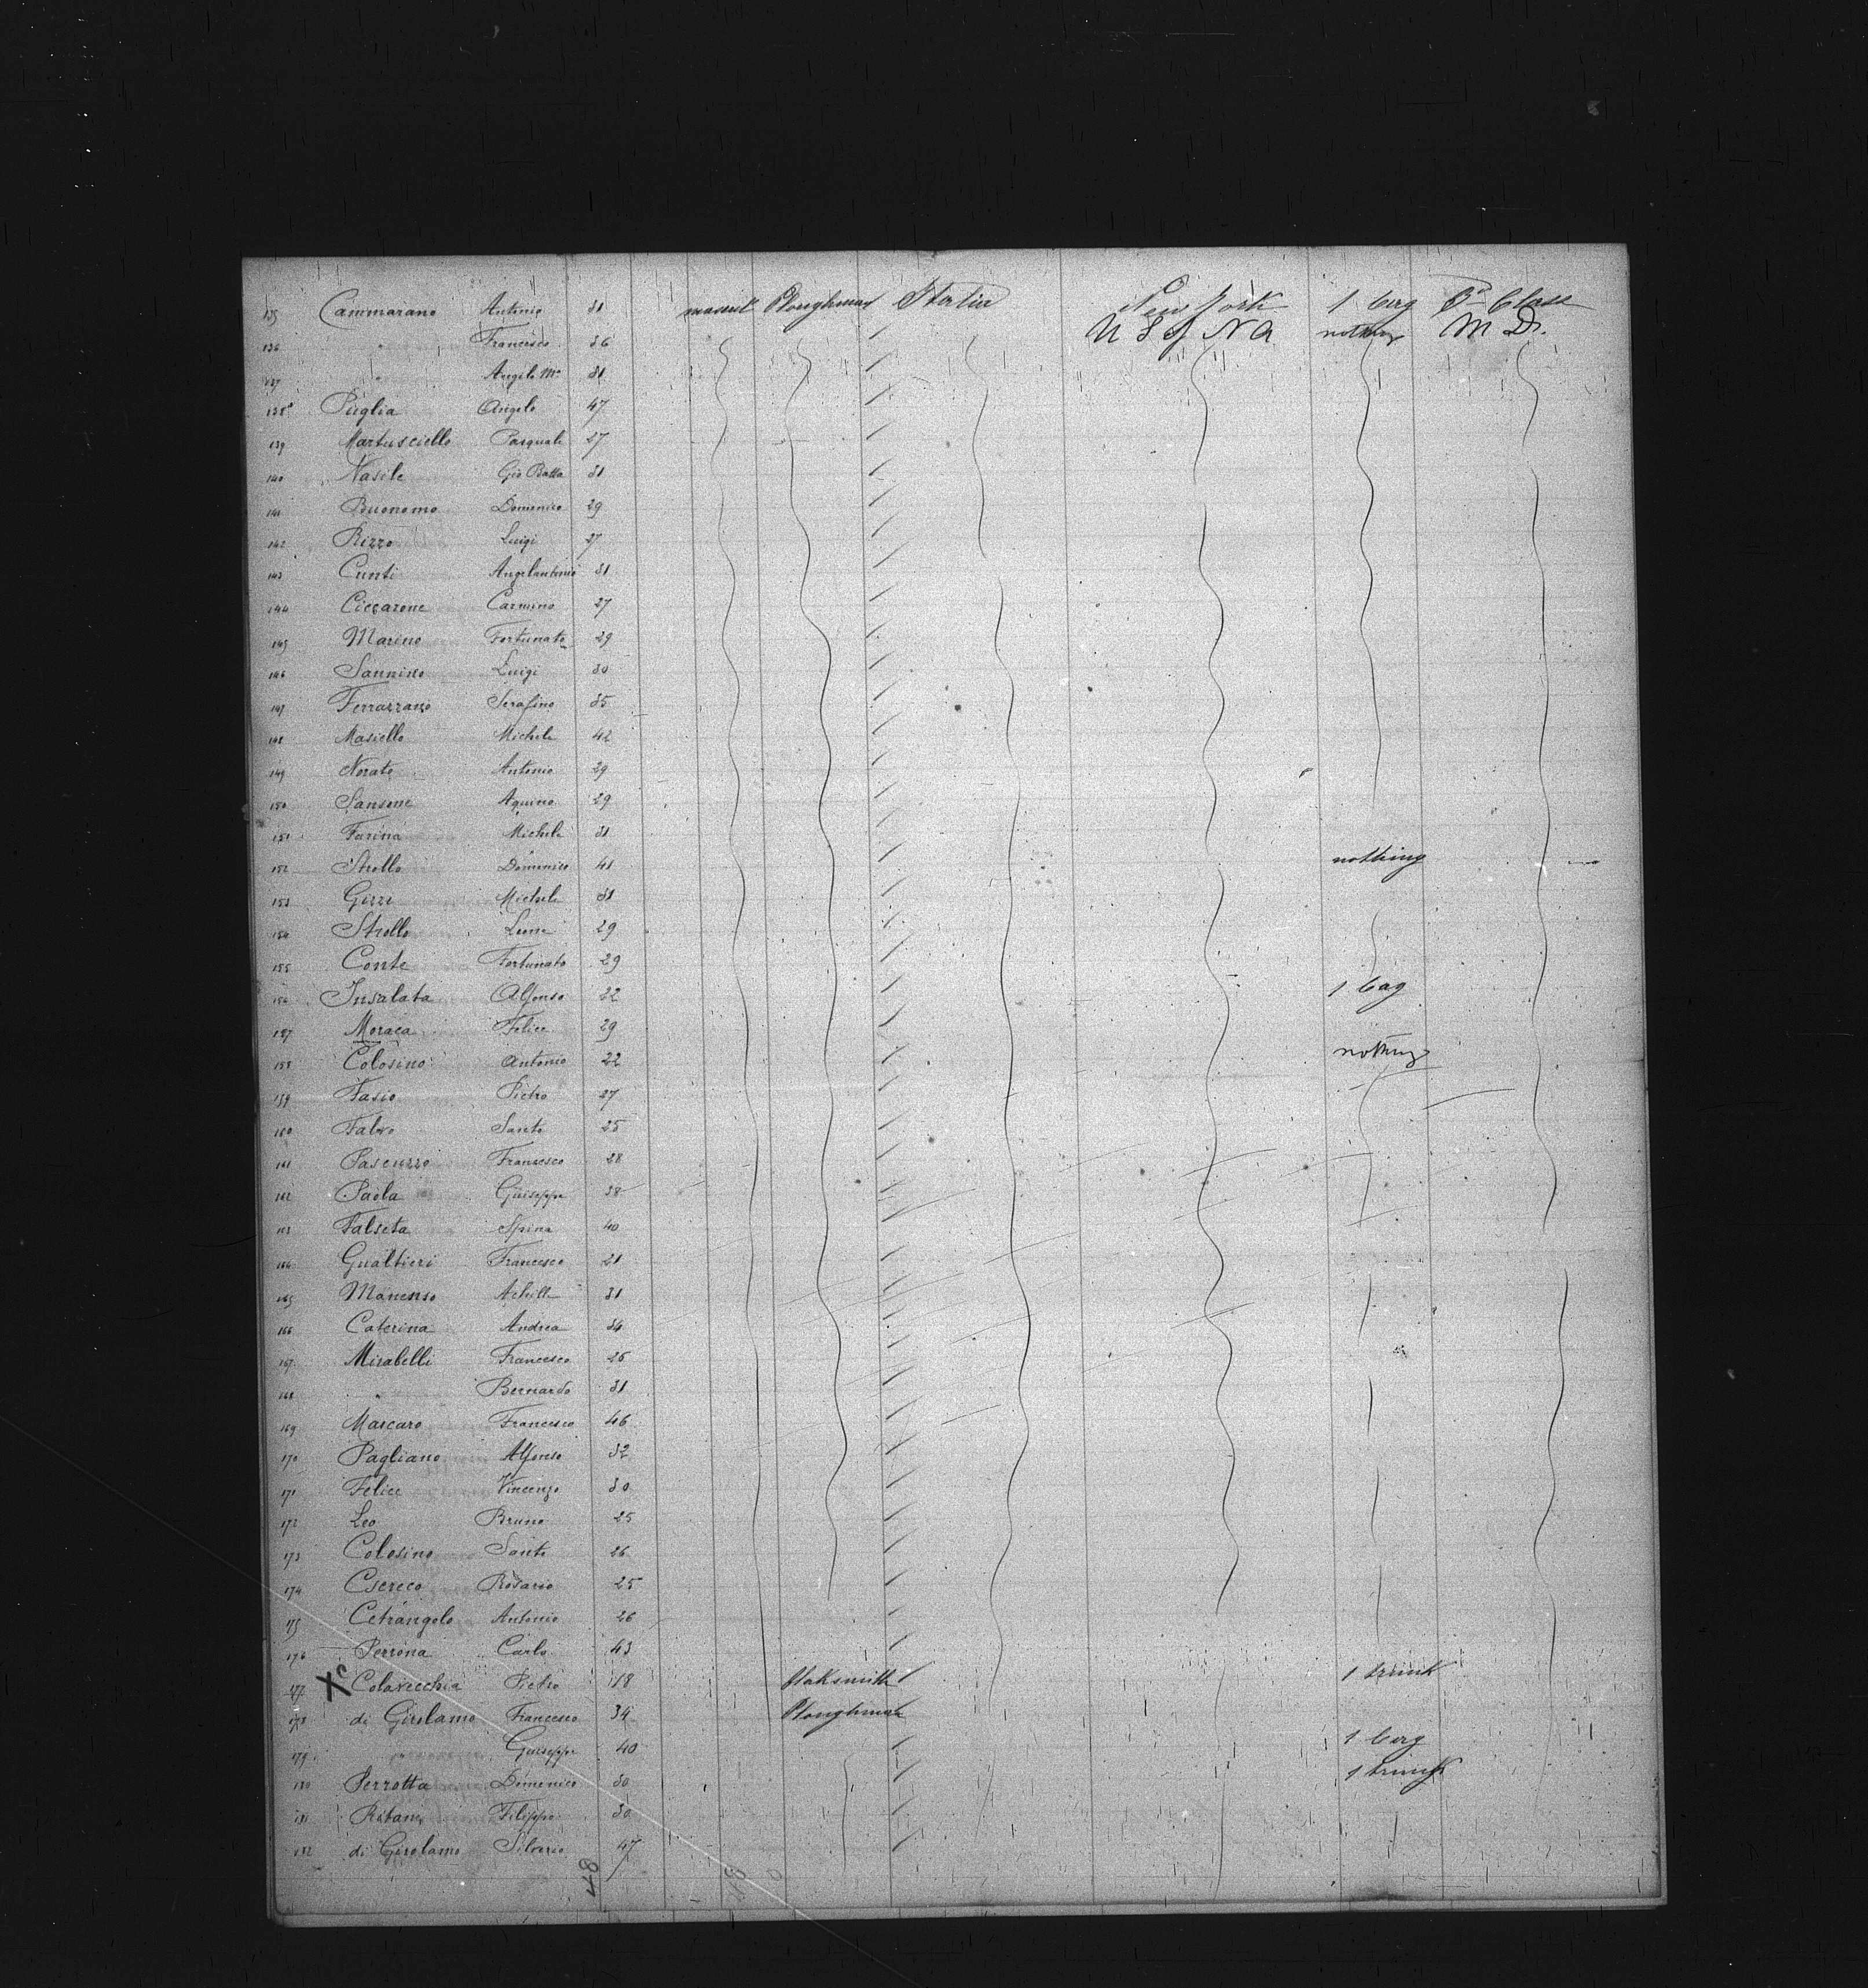 135 Cammarano Antonio 31 Ploughman Italia New York 1 bag 3a Class
136 " Francesco 36 U S of N A nothing M D.
137 " Angelo Ma 31
138 Puglia Angelo 47
139 Martusciello Pasquale 27
140 Nasile Gio Batta 31
141 Buonomo Domenico 29
142 Rizzo Luigi 27
143 Cunti Angelantonio 31
144 Ciccarone Carmino 27
145 Marino Fortunato 29
146 Sannino Luigi 30
147 Ferrazzano Serafino 35
148 Masiello Michele 42
149 Norato Antonio 29
150 Sansone Aquino 29
151 Farina Michele 31
152 Strollo Domenico 41 nothing
153 Gizzi Michele 31
154 Strollo Leone 29
155 Conte Fortunato 29
156 Insalata Alfonso 22 1 bag
157 Moraca Felice 29
158 Colosino Antonio 22 nothing
159 Fasio Pietro 27
160 Falvo Santo 25
161 Pascuzzo Francesco 28
162 Paola Guiseppe 38
163 Falseta Spina 40
164 Gualtieri Francesco 21
165 Manenso Achille 31
166 Caterina Andrea 34
167 Mirabelli Francesco 26
168 " Bernardo 31
169 Marcaro Francesco 46
170 Pagliano Alfonso 32
171 Felice Vincenzo 30
172 Leo Bruno 25
173 Colosino Santo 26
174 Csereco Rosario 25
175 Cetrangolo Antonio 26
176 Perrona Carlo 43
177 X Colavecchia Pietro 18 Blaksmith 1 trunk
178 di Girolamo Francesco 34 Ploughman
179 " Guiseppe 40 1 bag
180 Perrotta Domenico 30 1 trunk
181 Ribani Filippo 30
182 di Girolamo Silverio 47